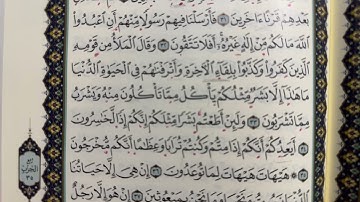 بَعْدِهِمْ قَرْنًا ءَاخَرِينَ ٣١ فَأَرْسَلْنَا فِيهِمْ رَسُولًا مِّنْهُمْ أَنِ ٱعْبُدُوا۟
ٱللَّهَ مَا لَكُم مِّنْ إِلَٰهٍ غَيْرُهُۥٓ أَفَلَا تَتَّقُونَ ٣٢ وَقَالَ ٱلْمَلَأُ مِن قَوْمِهِ
ٱلَّذِينَ كَفَرُوا۟ وَكَذَّبُوا۟ بِلِقَآءِ ٱلْءَاخِرَةِ وَأَتْرَفْنَٰهُمْ فِى ٱلْحَيَوٰةِ ٱلدُّنْيَا
مَا هَٰذَآ إِلَّا بَشَرٌ مِّثْلُكُمْ يَأْكُلُ مِمَّا تَأْكُلُونَ مِنْهُ وَيَشْرَبُ
مِمَّا تَشْرَبُونَ ٣٣ وَلَئِنْ أَطَعْتُم بَشَرًا مِّثْلَكُمْ إِنَّكُمْ إِذًا لَّخَٰسِرُونَ
٣٤ أَيَعِدُكُمْ أَنَّكُمْ إِذَا مِتُّمْ وَكُنتُمْ تُرَابًا وَعِظَٰمًا أَنَّكُم مُّخْرَجُونَ
٣٥ هَيْهَاتَ هَيْهَاتَ لِمَا تُوعَدُونَ ٣٦ إِنْ هِىَ إِلَّا حَيَاتُنَا
ٱلدُّنْيَا نَمُوتُ وَنَحْيَا وَمَا نَحْنُ بِمَبْعُوثِينَ ٣٧ إِنْ هُوَ إِلَّا رَجُلٌ
ربع
الحزب
٣٥